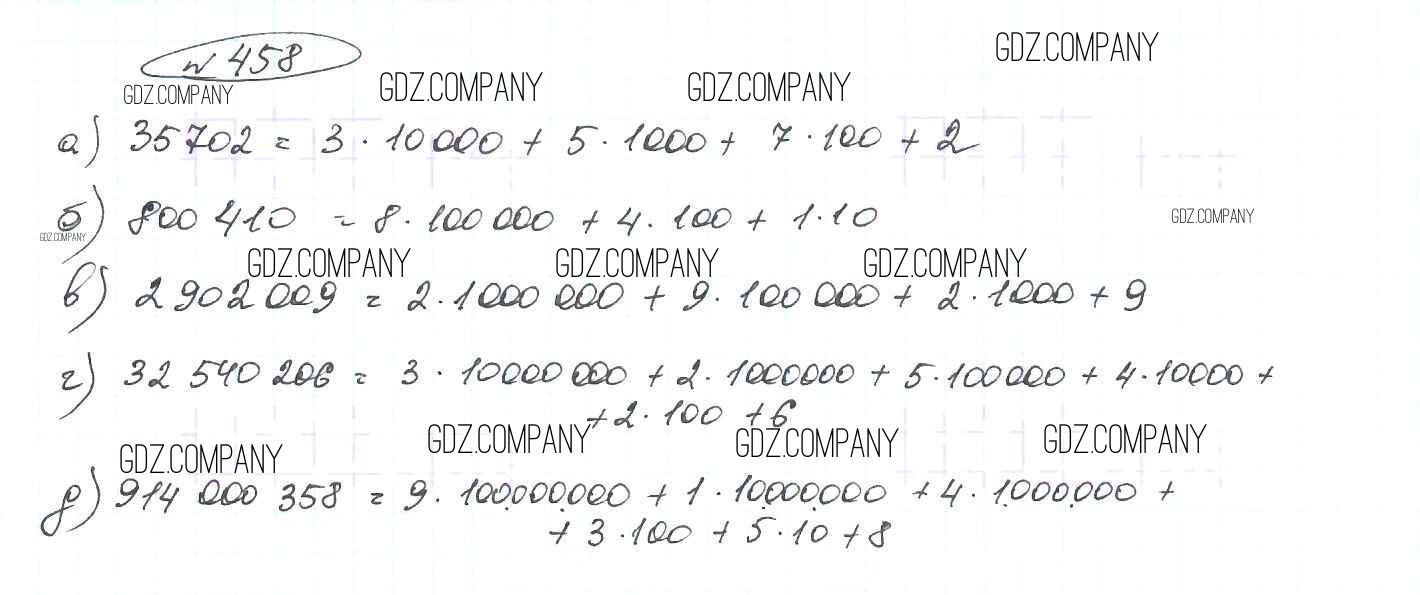 № 458
GDZ.COMPANY
GDZ.COMPANY GDZ.COMPANY GDZ.COMPANY
а) 35702 = 3 · 10 000 + 5 · 1000 + 7 · 100 + 2
б) 800 410 = 8 · 100 000 + 4 · 100 + 1 · 10
GDZ.COMPANY GDZ.COMPANY
GDZ.COMPANY GDZ.COMPANY GDZ.COMPANY
в) 2 902 009 = 2 · 1000 000 + 9 · 100 000 + 2 · 1000 + 9
г) 32 540 206 = 3 · 10000 000 + 2 · 1000000 + 5 · 100000 + 4 · 10000 +
+ 2 · 100 + 6
GDZ.COMPANY GDZ.COMPANY GDZ.COMPANY GDZ.COMPANY
д) 914 000 358 = 9 · 100,000,000 + 1 · 10,000,000 + 4 · 1,000,000 +
+ 3 · 100 + 5 · 10 + 8